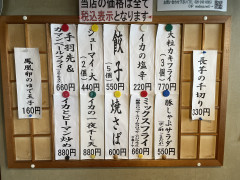 当店の価格は全て
税込表示となります。
長芋の千切り
330円
大粒カキフライ
(3個)
770円
豚しゃぶサラダ
550円
イカの塩辛
220円
ミックスフライ
660円
餃子
(5個)
550円
焼きそば
600円
シューマイ 大
(2個)
440円
イカの一夜干し天
880円
手羽先&
660円
イカとピーマン炒め
880円
鳳凰卵のゆで玉子
160円